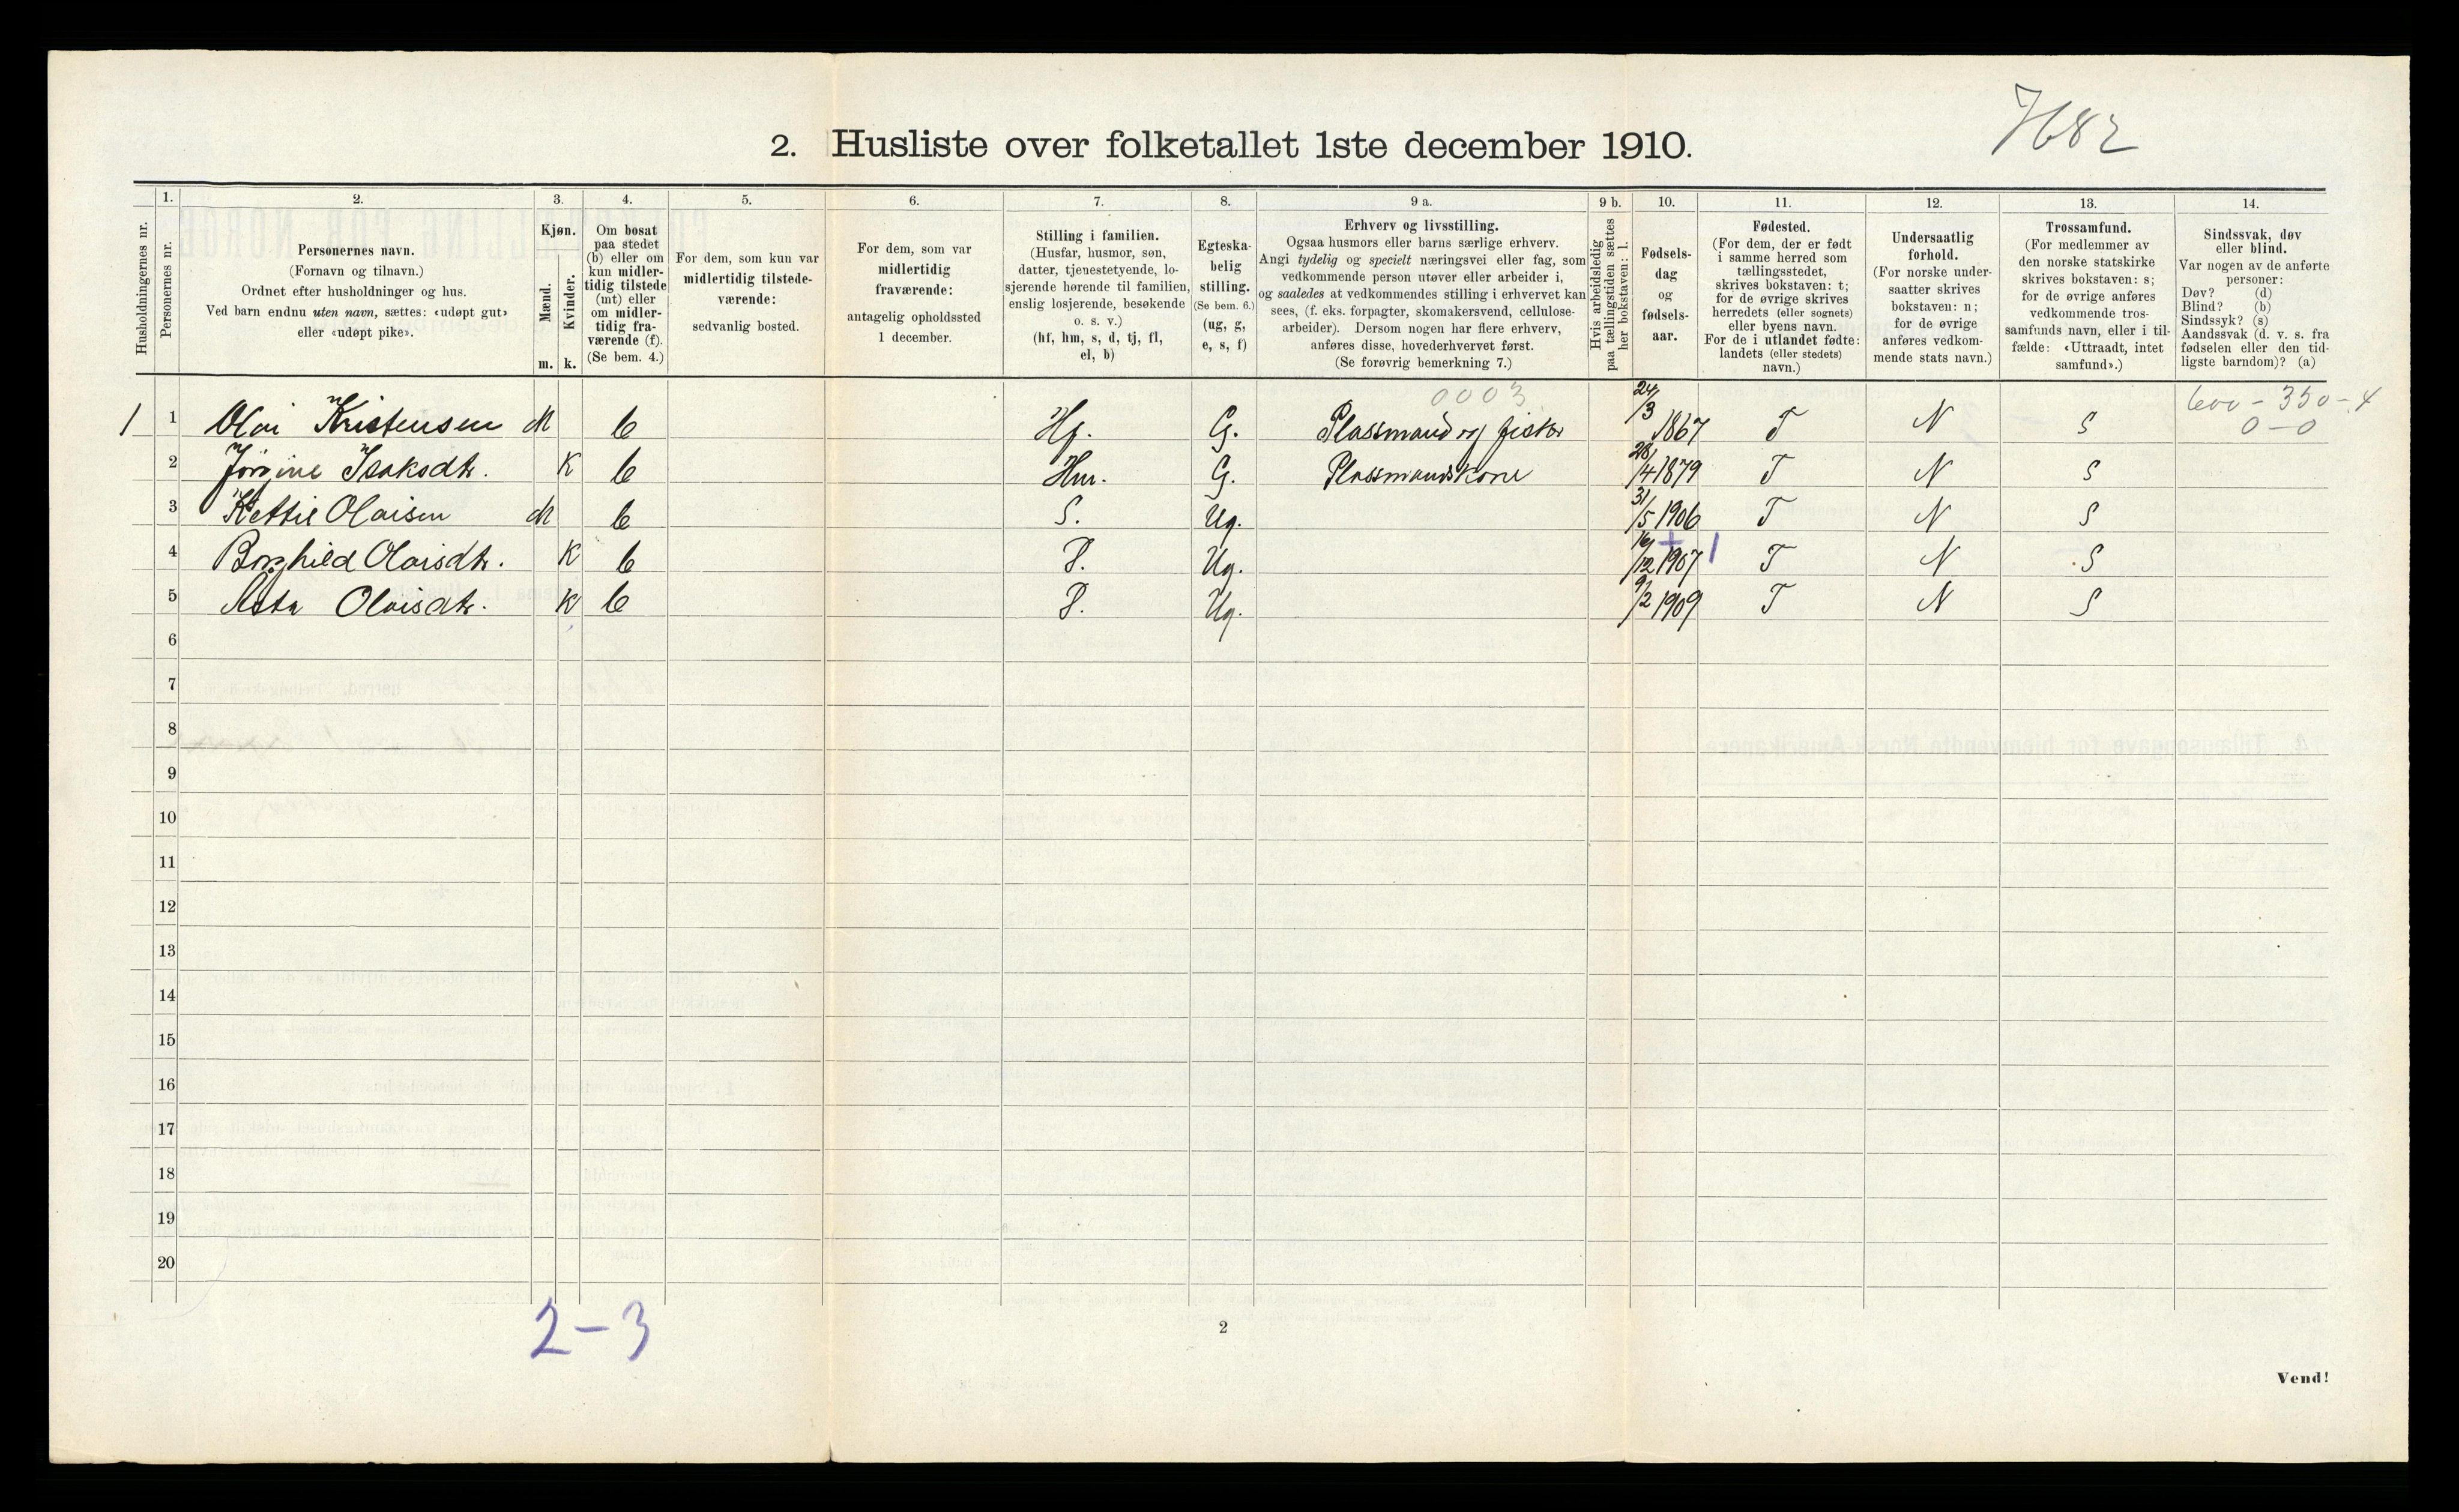 7682
2. Husliste over folketallet 1ste december 1910.
Husholdningernes nr.
1.
Personernes nr.
2.
Personernes navn.
(Fornavn og tilnavn.)
Ordnet efter husholdninger og hus.
Ved barn endnu uten navn, sættes: «udøpt gut»
eller «udøpt pike».
3.
Kjøn.
Mænd.
Kvinder.
m. k.
4.
Om bosat
paa stedet
(b) eller om
kun midler-
tidig tilstede
(mt) eller
om midler-
tidig fra-
værende (f).
(Se bem. 4.)
5.
For dem, som kun var
midlertidig tilstede-
værende:
sedvanlig bosted.
6.
For dem, som var
midlertidig
fraværende:
antagelig opholdssted
1 december.
7.
Stilling i familien.
(Husfar, husmor, søn,
datter, tjenestetyende, lo-
sjerende hørende til familien,
enslig losjerende, besøkende
o. s. v.)
(hf, hm, s, d, tj, fl,
el, b)
8.
Egteska-
belig
stilling.
(Se bem. 6.)
(ug, g,
e, s, f)
9 a.
Erhverv og livsstilling.
Ogsaa husmors eller barns særlige erhverv.
Angi tydelig og specielt næringsvei eller fag, som
vedkommende person utøver eller arbeider i,
og saaledes at vedkommendes stilling i erhvervet kan
sees, (f. eks. forpagter, skomakersvend, cellulose-
arbeider). Dersom nogen har flere erhverv,
anføres disse, hovederhvervet først.
(Se forøvrig bemerkning 7.)
9 b.
Hvis arbeidsledig
paa tællingstiden sættes
her bokstaven: l.
10.
Fødsels-
dag
og
fødsels-
aar.
11.
Fødested.
(For dem, der er født
i samme herred som
tællingsstedet,
skrives bokstaven: t;
for de øvrige skrives
herredets (eller sognets)
eller byens navn.
For de i utlandet fødte:
landets (eller stedets)
navn.)
12.
Undersaatlig
forhold.
(For norske under-
saatter skrives
bokstaven: n;
for de øvrige
anføres vedkom-
mende stats navn.)
13.
Trossamfund.
(For medlemmer av
den norske statskirke
skrives bokstaven: s;
for de øvrige anføres
vedkommende tros-
samfunds navn, eller i til-
fælde: «Uttraadt, intet
samfund».)
14.
Sindssvak, døv
eller blind.
Var nogen av de anførte
personer:
Døv? (d)
Blind? (b)
Sindssyk? (s)
Aandssvak (d. v. s. fra
fødselen eller den tid-
ligste barndom)? (a)
0003 600 - 350 - 4
1 1 Olai Kristensen M b Hf. G. Plassmand og fisker 24/3 1867 T N S 0 - 0
2 Jörgine Isaksdtr. K b Hm. G. Plassmandskone 28/4 1879 T N S
3 Kettil Olaisen M b S. Ug. 31/5 1906 T N S
4 Borghild Olaisdtr. K b D. Ug. 16/12 1907 T N S
5 Asta Olaisdtr. K b D. Ug. 9/2 1909 T N S
6
7
8
9
10
11
12
13
14
15
16
17
18
19
20
2 - 3
2
Vend!